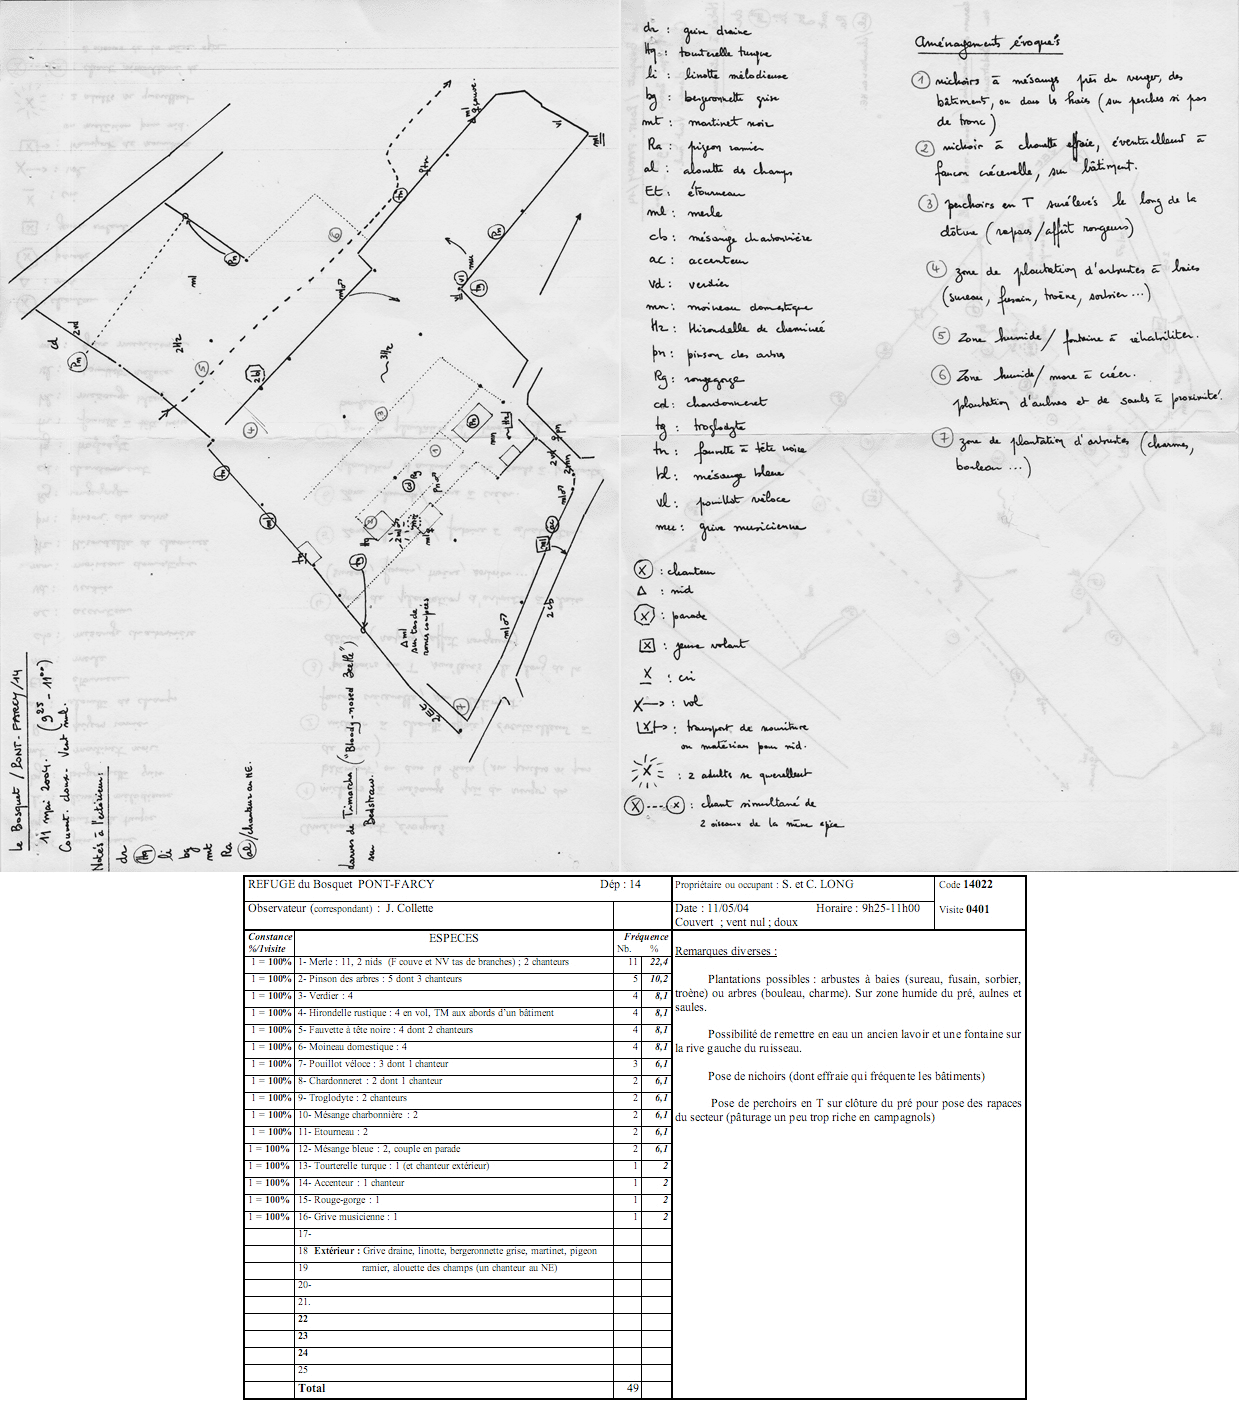 Le Bosquet / PONT-FARCY / 14
11 mai 2004. (9h25 - 11h00)
Couvert. doux. Vent nul.
Notés à l'extérieur :
dr
Hq
li
bg
mt
Ra
al / chanteur au NE.
larves de Timarcha ("Bloody-nosed Beetle")
sur Bedstraw.
Δ ml
sur tas de
ronces coupées
dr : grive draine
Hq : tourterelle turque
li : linotte mélodieuse
bg : bergeronnette grise
mt : martinet noir
Ra : pigeon ramier
al : alouette des champs
Et : étourneau
ml : merle
cb : mésange charbonnière
ac : accenteur
vd : verdier
mn : moineau domestique
Hz : Hirondelle de cheminée
pn : pinson des arbres
Rg : rougegorge
cd : chardonneret
tg : troglodyte
tn : fauvette à tête noire
bl : mésange bleue
vl : pouillot véloce
mu : grive musicienne
X : chanteur
Δ : nid
X : parade
X : jeune volant
X : cri
X—> : vol
X : transport de nourriture
ou matériau pour nid.
X : 2 adultes se querellent
X----X : chant simultané de
2 oiseaux de la même espèce
Aménagements évoqués
1 nichoirs à mésanges près du verger, des
bâtiments, ou dans les haies (sur perches si pas
de tronc)
2 nichoir à chouette effraie, éventuellement à
faucon crécerelle, sur bâtiment.
3 perchoirs en T surélevés le long de la
clôture (rapaces / affût rongeurs)
4 zone de plantation d'arbustes à baies
(sureau, fusain, troène, sorbier ...)
5 Zone humide / fontaine à réhabiliter.
6 Zone humide / mare à créer.
plantation d'aulnes et de saules à proximité.
7 zone de plantation d'arbustes (charmes,
bouleau ...)
REFUGE du Bosquet PONT-FARCY Dép : 14
Propriétaire ou occupant : S. et C. LONG
Code 14022
Observateur (correspondant) : J. Collette
Date : 11/05/04 Horaire : 9h25-11h00
Couvert ; vent nul ; doux
Visite 0401
Constance ESPECES Fréquence
%/1visite Nb. %
1 = 100% 1- Merle : 11, 2 nids (F couve et NV tas de branches) ; 2 chanteurs 11 22,4
1 = 100% 2- Pinson des arbres : 5 dont 3 chanteurs 5 10,2
1 = 100% 3- Verdier : 4 4 8,1
1 = 100% 4- Hirondelle rustique : 4 en vol, TM aux abords d'un bâtiment 4 8,1
1 = 100% 5- Fauvette à tête noire : 4 dont 2 chanteurs 4 8,1
1 = 100% 6- Moineau domestique : 4 4 8,1
1 = 100% 7- Pouillot véloce : 3 dont 1 chanteur 3 6,1
1 = 100% 8- Chardonneret : 2 dont 1 chanteur 2 6,1
1 = 100% 9- Troglodyte : 2 chanteurs 2 6,1
1 = 100% 10- Mésange charbonnière : 2 2 6,1
1 = 100% 11- Etourneau : 2 2 6,1
1 = 100% 12- Mésange bleue : 2, couple en parade 2 6,1
1 = 100% 13- Tourterelle turque : 1 (et chanteur extérieur) 1 2
1 = 100% 14- Accenteur : 1 chanteur 1 2
1 = 100% 15- Rouge-gorge : 1 1 2
1 = 100% 16- Grive musicienne : 1 1 2
17-
18 Extérieur : Grive draine, linotte, bergeronnette grise, martinet, pigeon
19 ramier, alouette des champs (un chanteur au NE)
20-
21.
22
23
24
25
Total 49
Remarques diverses :
Plantations possibles : arbustes à baies (sureau, fusain, sorbier,
troène) ou arbres (bouleau, charme). Sur zone humide du pré, aulnes et
saules.
Possibilité de remettre en eau un ancien lavoir et une fontaine sur
la rive gauche du ruisseau.
Pose de nichoirs (dont effraie qui fréquente les bâtiments)
Pose de perchoirs en T sur clôture du pré pour pose des rapaces
du secteur (pâturage un peu trop riche en campagnols)